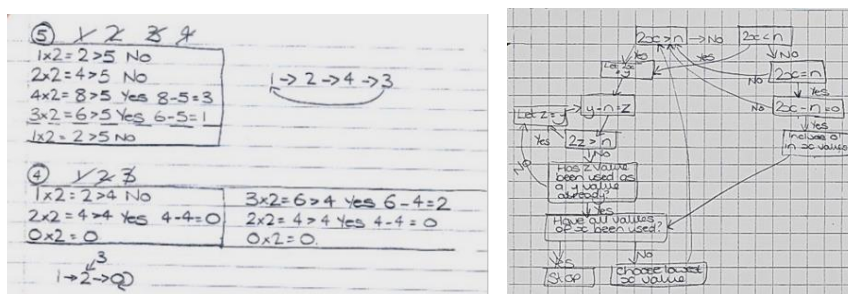 ⑤ 1 2 3 4
1×2=2>5 No
2×2=4>5 No
4×2=8>5 Yes 8-5=3
3×2=6>5 Yes 6-5=1
1×2=2>5 No
1→2→4→3
④ 1 2 3
1×2=2>4 No
2×2=4>4 Yes 4-4=0
0×2=0
3×2=6>4 Yes 6-4=2
2×2=4>4 Yes 4-4=0
0×2=0.
3
1→2→0
2x>n →No
2x<n
Yes
Yes
No
2x=n
No
Yes
2x-n=0
No
Yes
Let z=y
y-n=z
Yes
2z>n
No
No
Has z value
been used as
a y value
already?
Yes
in x value
Have all values
of x been used?
Yes
No
Stop
choose lowest
x value